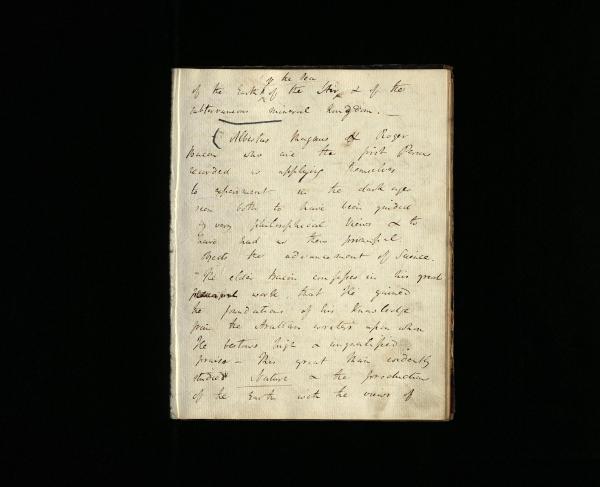 of the Sea
of the Earth & of the Air & of the
subterraneous mineral Kingdom. —
(Albertus Magnus & Roger
Bacon who are the first Persons
recorded as applying themselves
to experiment in the dark ages
seem both to have been guided
by very philosophical Views & to
have had as their principal
objects the advancement of Science.
"The elder Bacon confesses in his great
work that He gained
the foundations of his Knowledge
from the Arabian writers upon whom
He bestows high & unqualified
praise — This great Man evidently
studied Nature & the productions
of the Earth with the views of